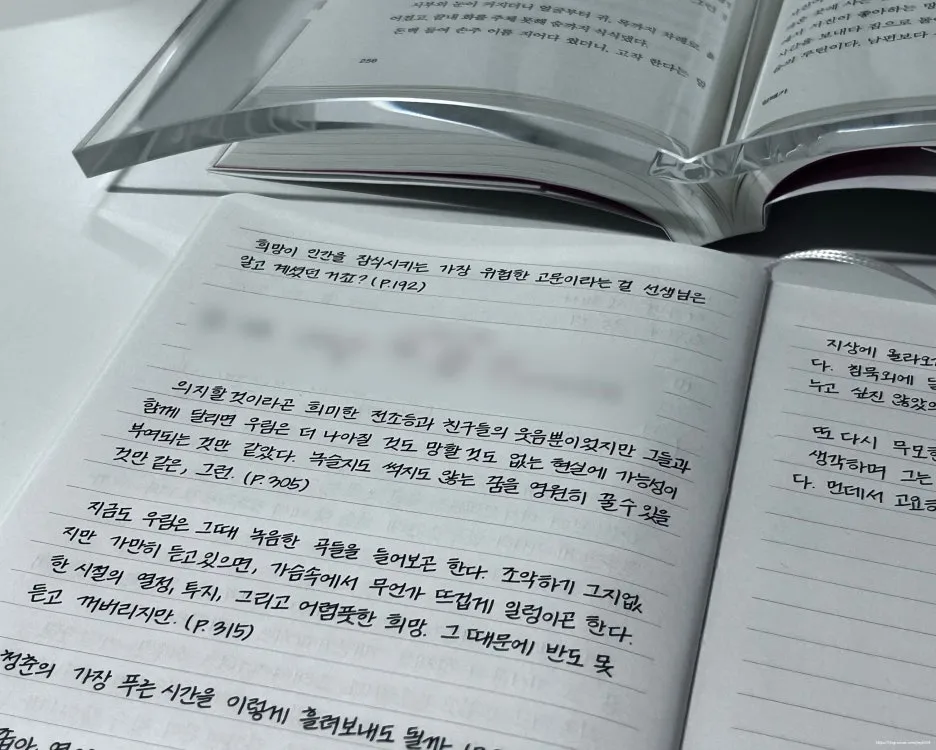 시부의 눈이 커지더니 얼굴부터 귀, 목까지 차례로
어졌고, 끝내 화를 주체 못해 숨까지 식식댔다.
돈백 들여 손주 이름 지어다 줬더니, 고작 한다는
250
시간을 보내다 집으로
남편보다
희망이 인간을 잠식시키는 가장 위험한 고문이라는 걸 선생님은
알고 계셨던 거죠? (P.192)
의지할 것이라곤 희미한 전조등과 친구들의 웃음뿐이었지만 그들과
함께 달리면 우림은 더 나아질 것도 망할 것도 없는 현실에 가능성이
부여되는 것만 같았다. 녹슬지도 썩지도 않는 꿈을 영원히 꿀 수 있을
것만 같은, 그런. (P.305)
지금도 우림은 그때 녹음한 곡들을 들어보곤 한다. 조악하기 그지없
지만 가만히 듣고 있으면, 가슴속에서 무언가 뜨겁게 일렁이곤 한다.
한 시절의 열정, 투지, 그리고 어렴풋한 희망. 그 때문에 반도 못
듣고 꺼버리지만. (P.315)
청춘의 가장 푸른 시간을 이렇게 흘려보내도 될까
지상에 올라오
다. 침묵 외에
누고 살진 않았
또 다시 무모한
생각하며 그는
다. 먼데서 고요히